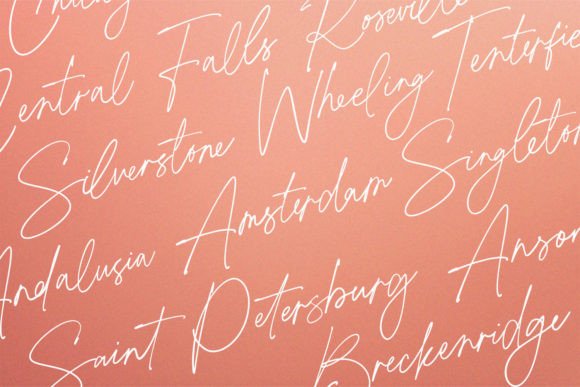 Central Falls Roseville
Silverstone Wheeling Tenterfie
Andalusia Amsterdam Singleton
Saint Petersburg Anson
Breckenridge